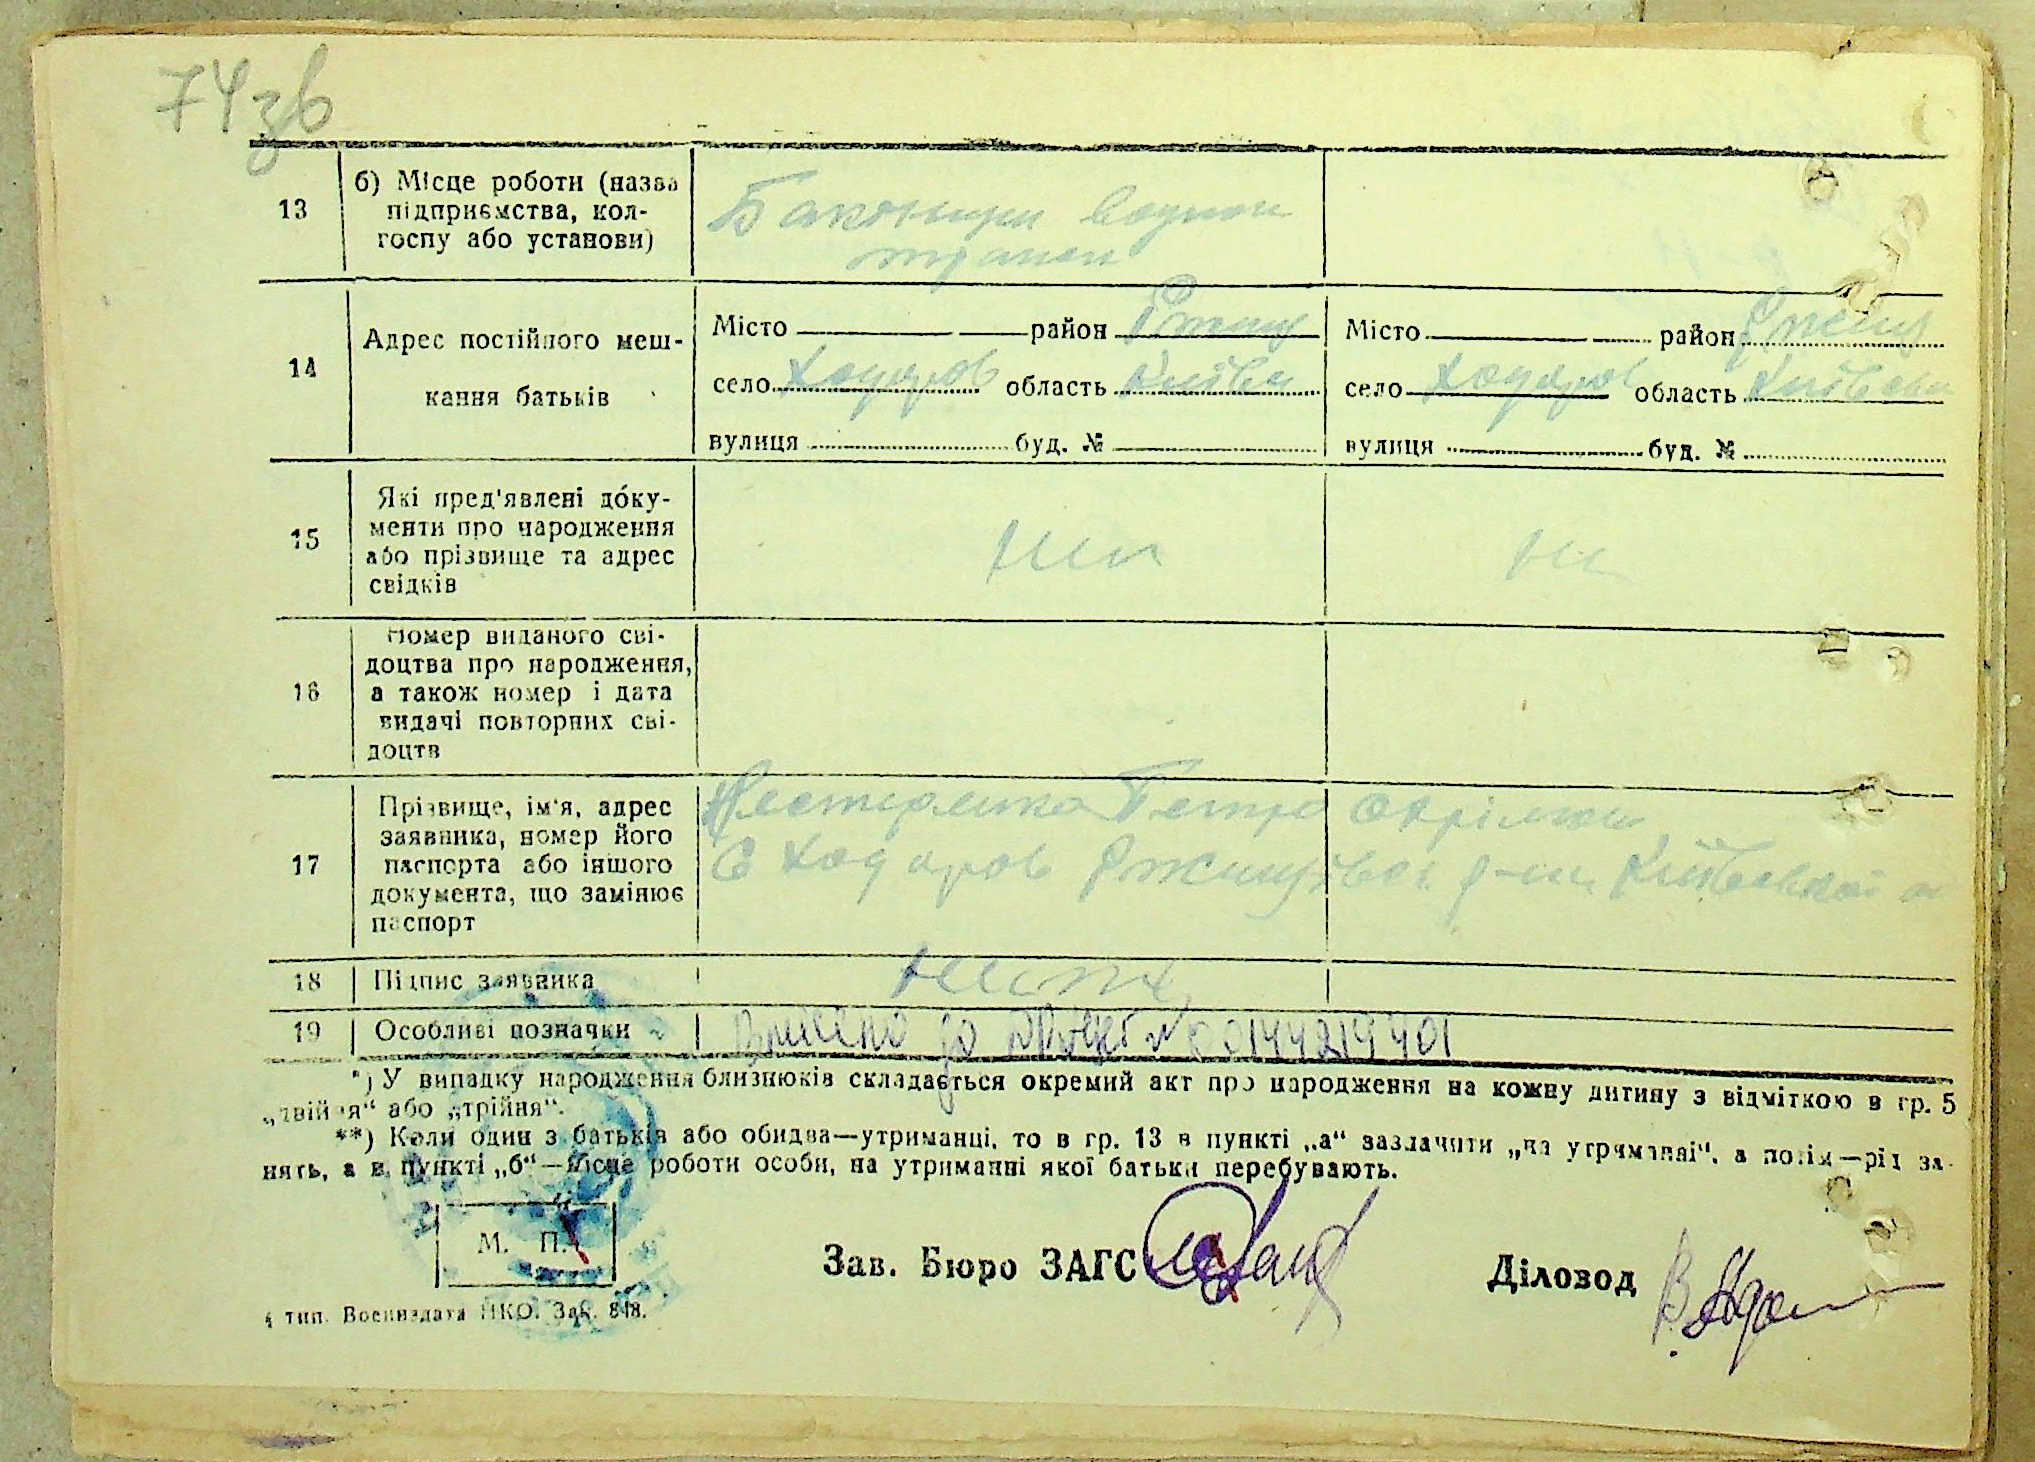 74 зв
13
б) Місце роботи (назва
підприємства, кол-
госпу або установи)
14
Адрес постійного меш-
кання батьків
Місто район
село Ходоров область Київськ
вулиця буд. №
Місто район
село Ходоров область Київськ
вулиця буд. №
15
Які пред'явлені доку-
менти про народження
або прізвище та адрес
свідків
16
Номер виданого сві-
доцтва про народження,
а також номер і дата
видачі повторних сві-
доцтв
17
Прізвище, ім'я, адрес
заявника, номер його
паспорта або іншого
документа, що замінює
паспорт
Нестеренко Петро
С Ходоров р-ну Київської о
18
Підпис заявника
19
Особливі позначки
Внесено до № 00144219401
*) У випадку народження близнюків складається окремий акт про народження на кожну дитину з відміткою в гр. 5
„двійня“ або „трійня“.
**) Коли один з батьків або обидва—утриманці, то в гр. 13 в пункті „а“ зазначити „на утриманні“, а потім—рід за-
нять, а в пункті „б“—місце роботи особи, на утриманні якої батьки перебувають.
М. П.
Зав. Бюро ЗАГС
Діловод
4 тип. Воениздата НКО. Зак. 818.